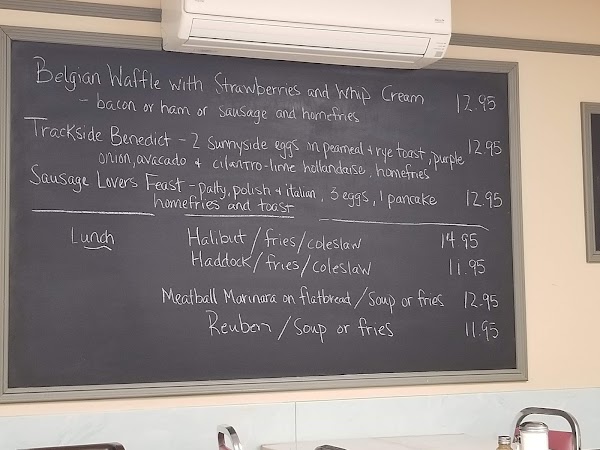 Belgian Waffle with Strawberries and Whip Cream 12.95
- bacon or ham or sausage and homefries
Trackside Benedict - 2 sunnyside eggs on peameal + rye toast, purple 12.95
onion, avacado + cilantro-lime hollandaise, homefries
Sausage Lovers Feast - patty, polish + italian, 3 eggs, 1 pancake 12.95
homefries and toast
Lunch Halibut/fries/coleslaw 14.95
Haddock/fries/coleslaw 11.95
Meatball Marinara on flatbread/Soup or fries 12.95
Reuben/Soup or fries 11.95